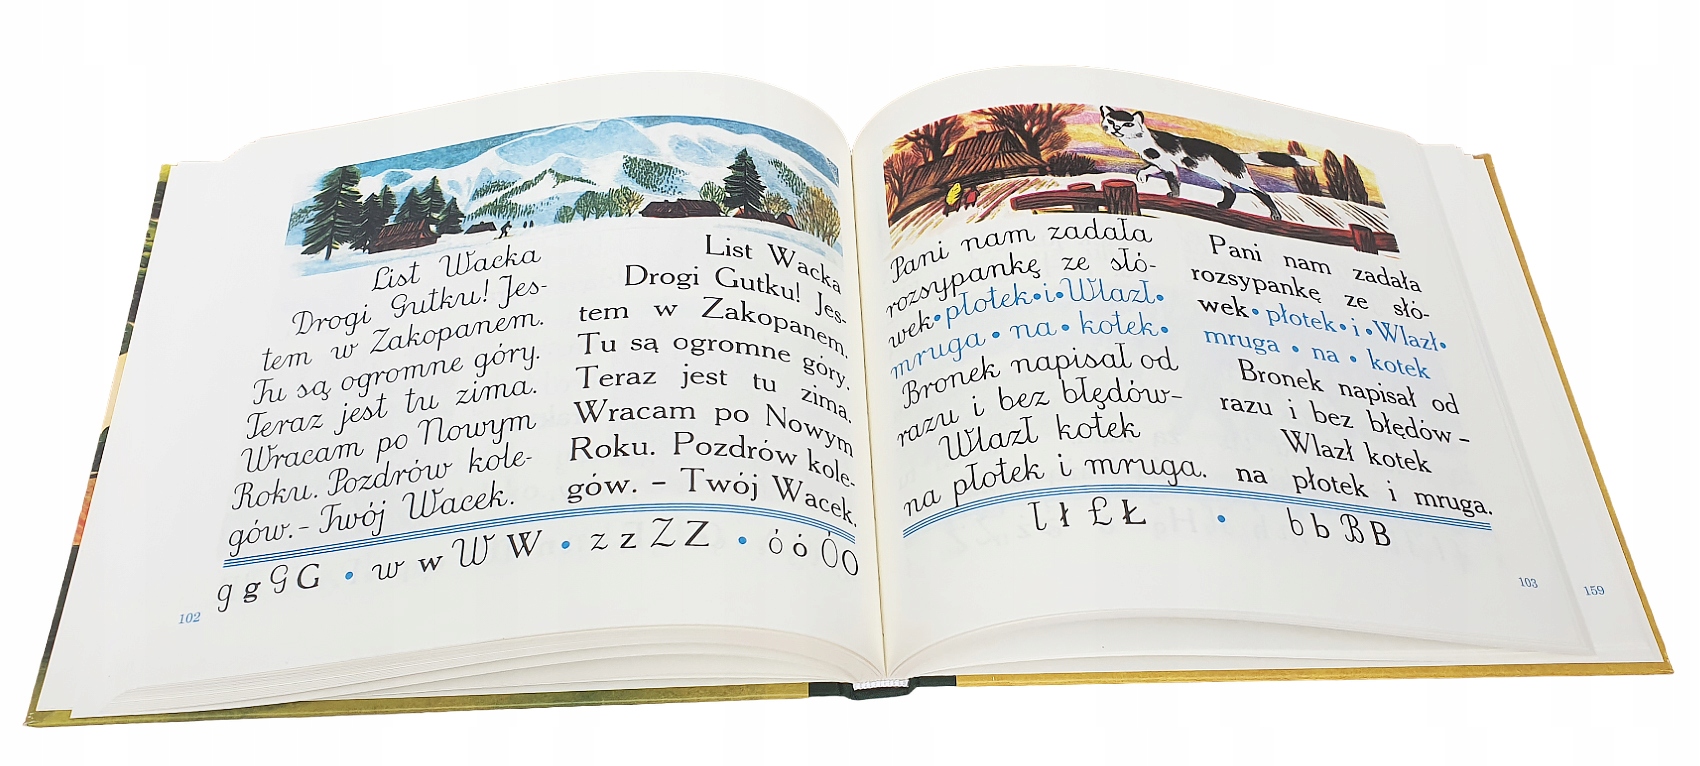 List Wacka
Drogi Gutku! Jes-
tem w Zakopanem.
Tu są ogromne góry.
Teraz jest tu zima.
Wracam po Nowym
Roku. Pozdrów kole-
gów. - Twój Wacek.
List Wacka
Drogi Gutku! Jes-
tem w Zakopanem.
Tu są ogromne góry.
Teraz jest tu zima.
Wracam po Nowym
Roku. Pozdrów kole-
gów. – Twój Wacek.
g g G G • w w W W • z z Z Z • ó ó Ó Ó
102
Pani nam zadała
rozsypankę ze słó-
wek•płotek•i•Wlazł•
mruga • na • kotek•
Bronek napisał od
razu i bez błędów-
Wlazł kotek
na płotek i mruga.
Pani nam zadała
rozsypankę ze słó-
wek• płotek•i•Wlazł•
mruga • na • kotek
Bronek napisał od
razu i bez błędów –
Wlazł kotek
na płotek i mruga.
ł ł Ł Ł • b b B B
103
159